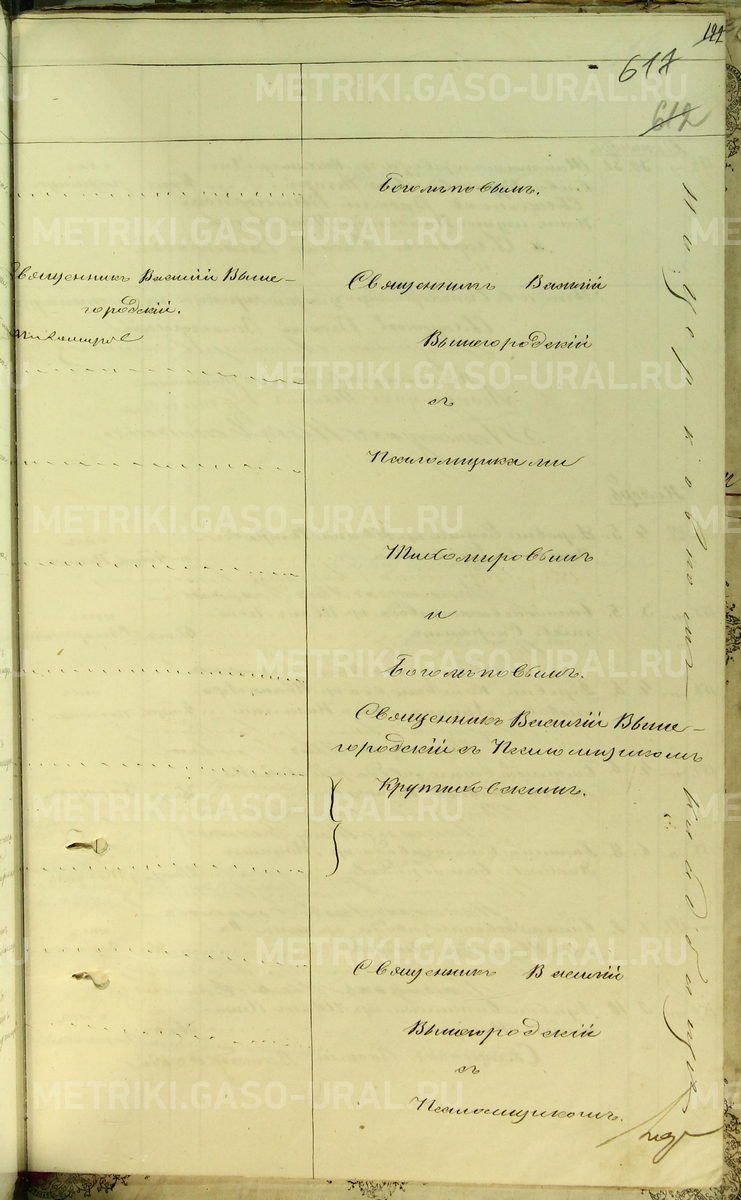 617
612
METRIKI.GASO-URAL.RU
Боголѣповымъ.
Священникъ Василій Выше-
городскій.
Священникъ Василій
Вышегородскій
съ
Псаломщиками
Тихомировымъ
и
Боголѣповымъ.
Священникъ Василій Выше-
городскій съ Псаломщикомъ
Священникъ Василій
Вышегородскій
съ
Псаломщикомъ.
кладбищѣ